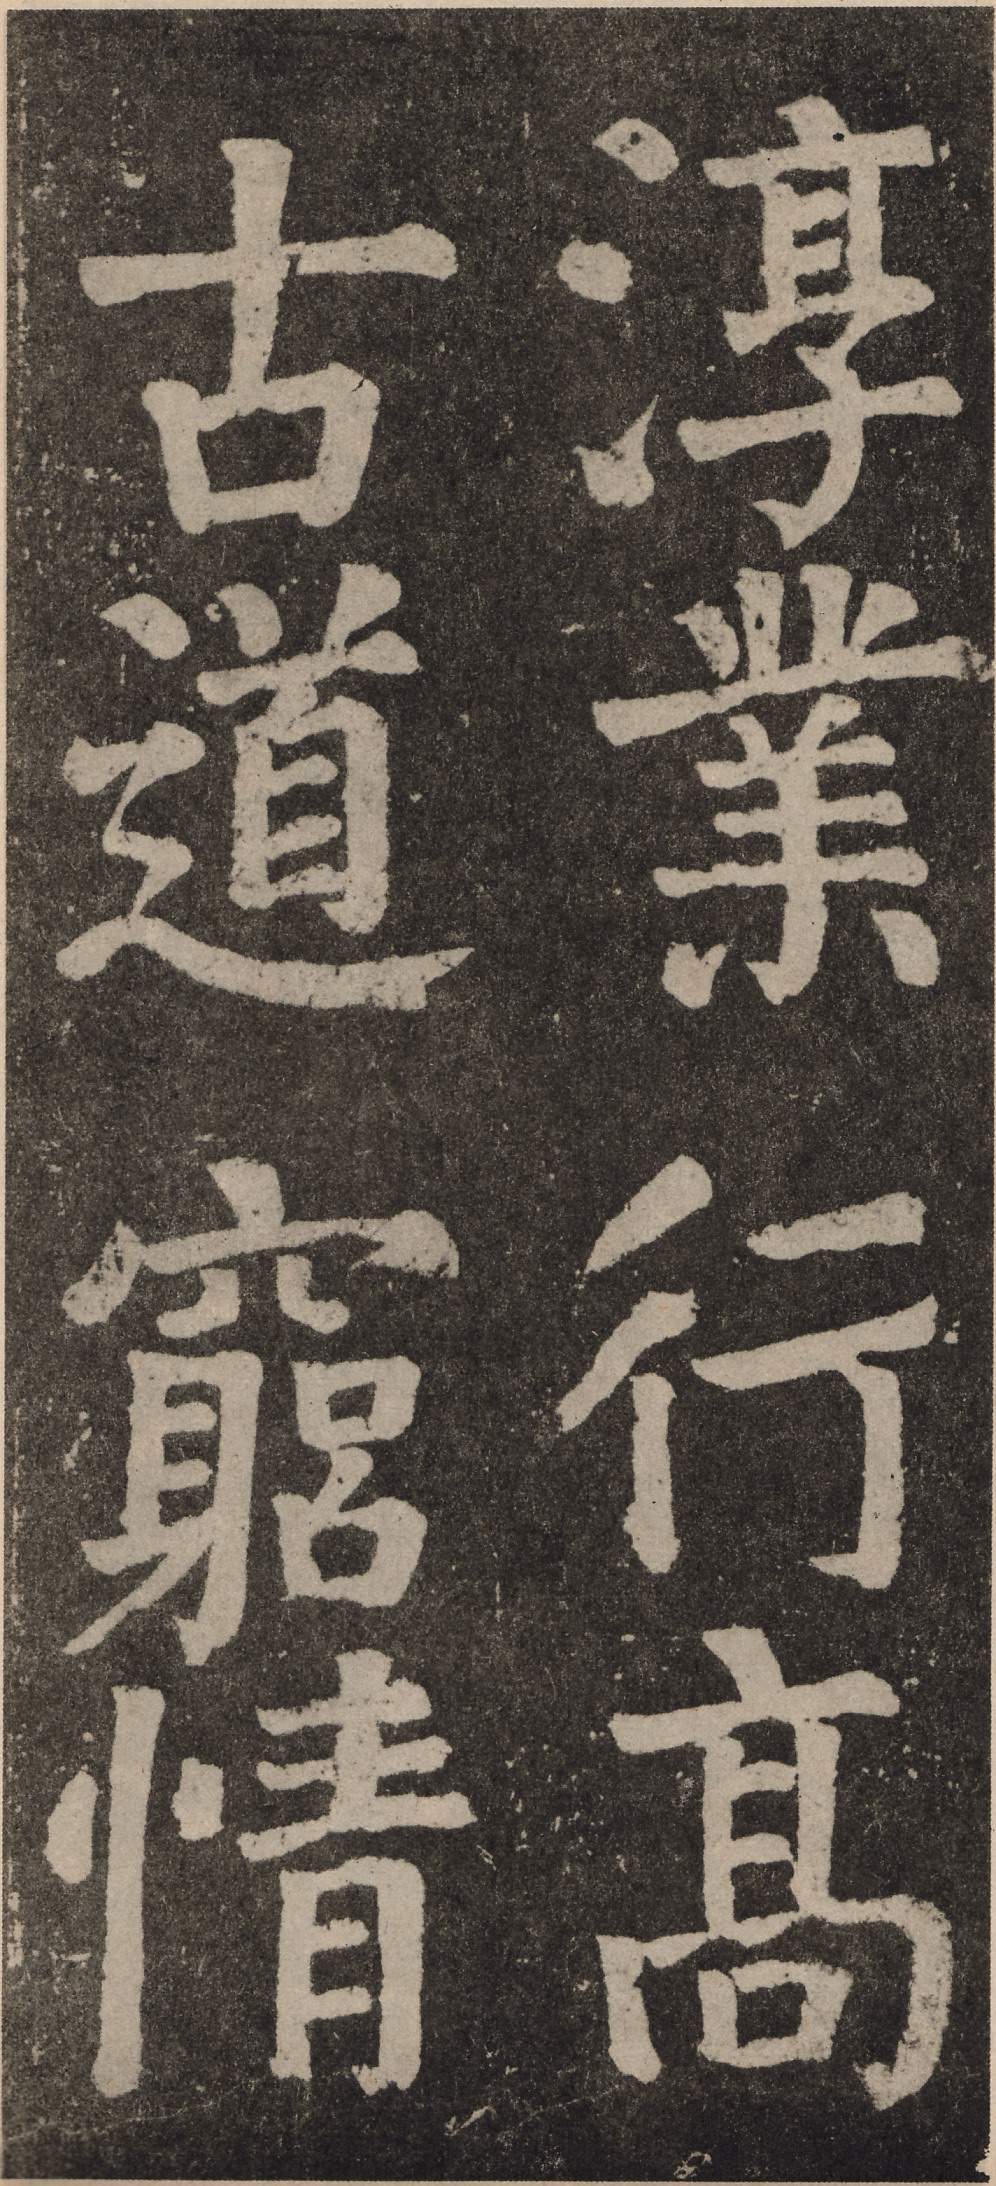 淳業行高
古道窮情